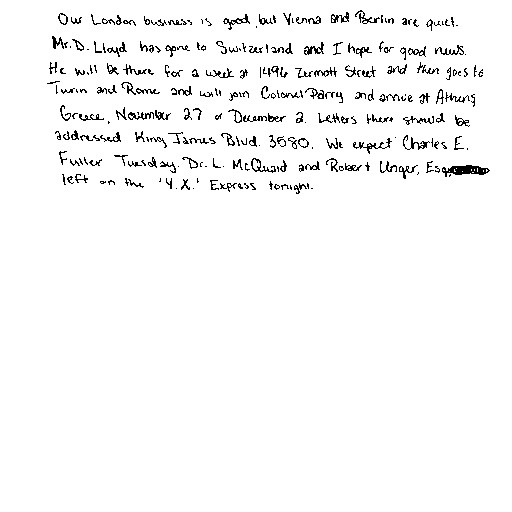 Our London business is good, but Vienna and Berlin are quiet.
Mr. D. Lloyd has gone to Switzerland and I hope for good news.
He will be there for a week at 1496 Zermott Street and then goes to
Turin and Rome and will join Colonel Parry and arrive at Athens,
Greece, November 27 or December 2. Letters there should be
addressed King James Blvd. 3580. We expect Charles E.
Fuller Tuesday. Dr. L. McQuaid and Robert Unger, Esq.,
left on the 'Y.X.' Express tonight.